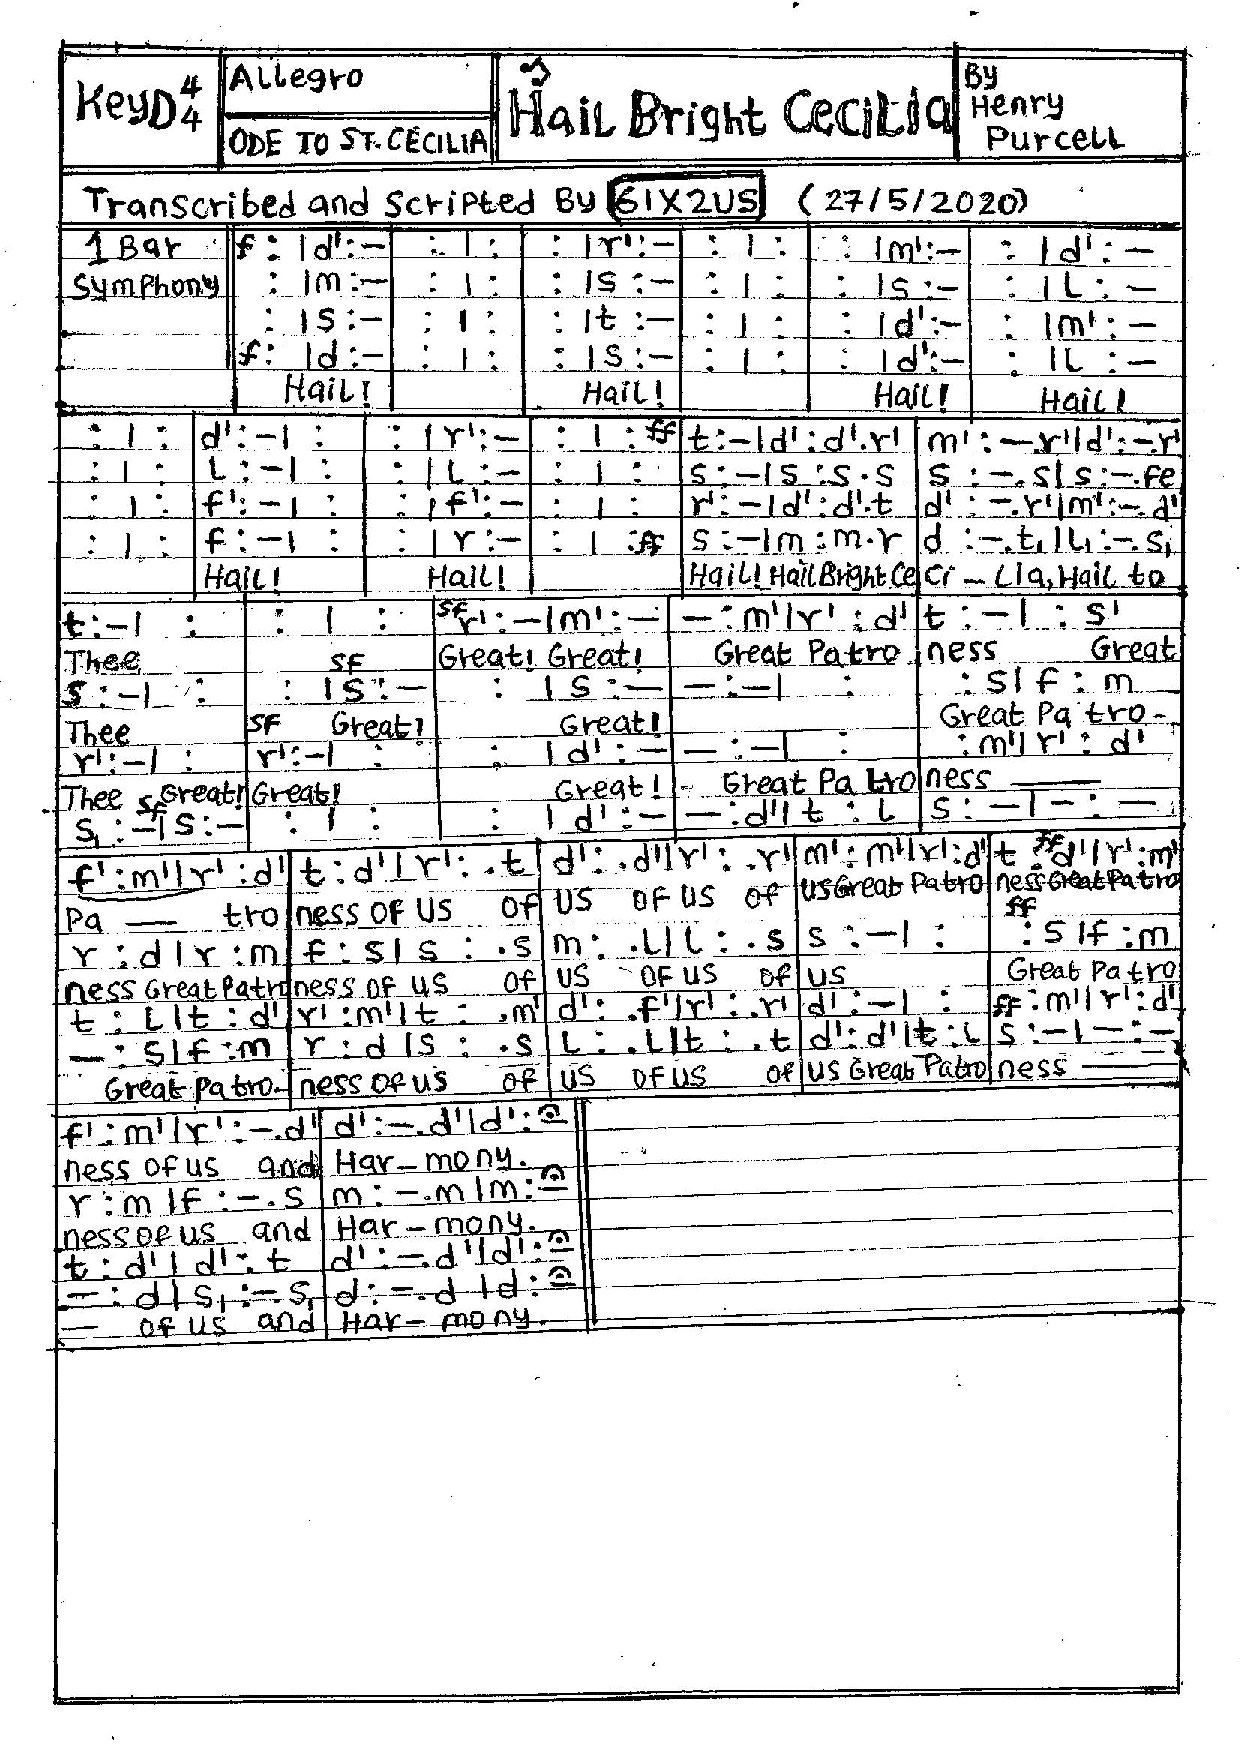 Key D 4/4
Allegro
ODE TO ST. CECILIA
Hail Bright Cecilia
By Henry Purcell
Transcribed and Scripted By 61X2US (27/5/2020)
1 Bar f : |d':— : | : : |r':— : | : : |m':— : |d':—
Symphony : |m:— : | : : |s:— : | : : |s:— : |L:—
: |s:— : | : : |t:— : | : : |d':— : |m':—
f: |d:— : | : : |s:— : | : : |d':— : |L:—
Hail! Hail! Hail! Hail!
: | : d':—| : : |r':— : | :ff t:—|d':d'.r' m':—.r'|d':—.r'
: | : L:—| : : |L:— : | : s:—|s:s.s s:—.s|s:—.fe
: | : f':—| : : |f':— : | : r':—|d':d'.t d':—.r'|m':—.d'
: | : f:—| : : |r:— : | :ff s:—|m:m.r d:—.t₁|L₁:—.s₁
Hail! Hail! Hail! Hail Bright Ce Ci — Lia, Hail to
t:—| : : | : sf r':—|m':— —:m'|r':d' t:—| :s'
Thee sf Great! Great! Great Patro ness Great
s:—| : : |s:— : |s:— —:—| : :s|f:m
Thee sf Great! Great! Great Pa tro-
r':—| : r':—| : : |d':— —:—| : :m'|r':d'
Thee sf Great! Great! Great! - Great Pa tro ness —
s₁:—|s:— : | : : |d':— —:d'|t:L s:—|—:—
f':m'|r':d' t:d'|r':.t d':.d'|r':.r' m':m'|r':d' t ff:d'|r':m'
Pa — tro ness of us of us of us of us Great Patro ness Great Patro
ff
r:d|r:m f:s|s:.s m:.L|L:.s s:—| : :s|f:m
ness Great Patro ness of us of us of us of us Great Pa tro
t:L|t:d' r':m'|t:.m' d':.f'|r':.r' d':—| : ff:m'|r':d'
—:s|f:m r:d|s:.s L:.L|t:.t d':d'|t:L s:—|—:—
Great Patro- ness of us of us of us of us Great Patro ness —
f':m'|r':—.d' d':—.d'|d':
ness of us and Har-mony.
r:m|f:—.s m:—.m|m:
ness of us and Har-mony.
t:d'|d':t d':—.d'|d':
—:d|s₁:—s₁ d:—.d|d:
— of us and Har-mony.